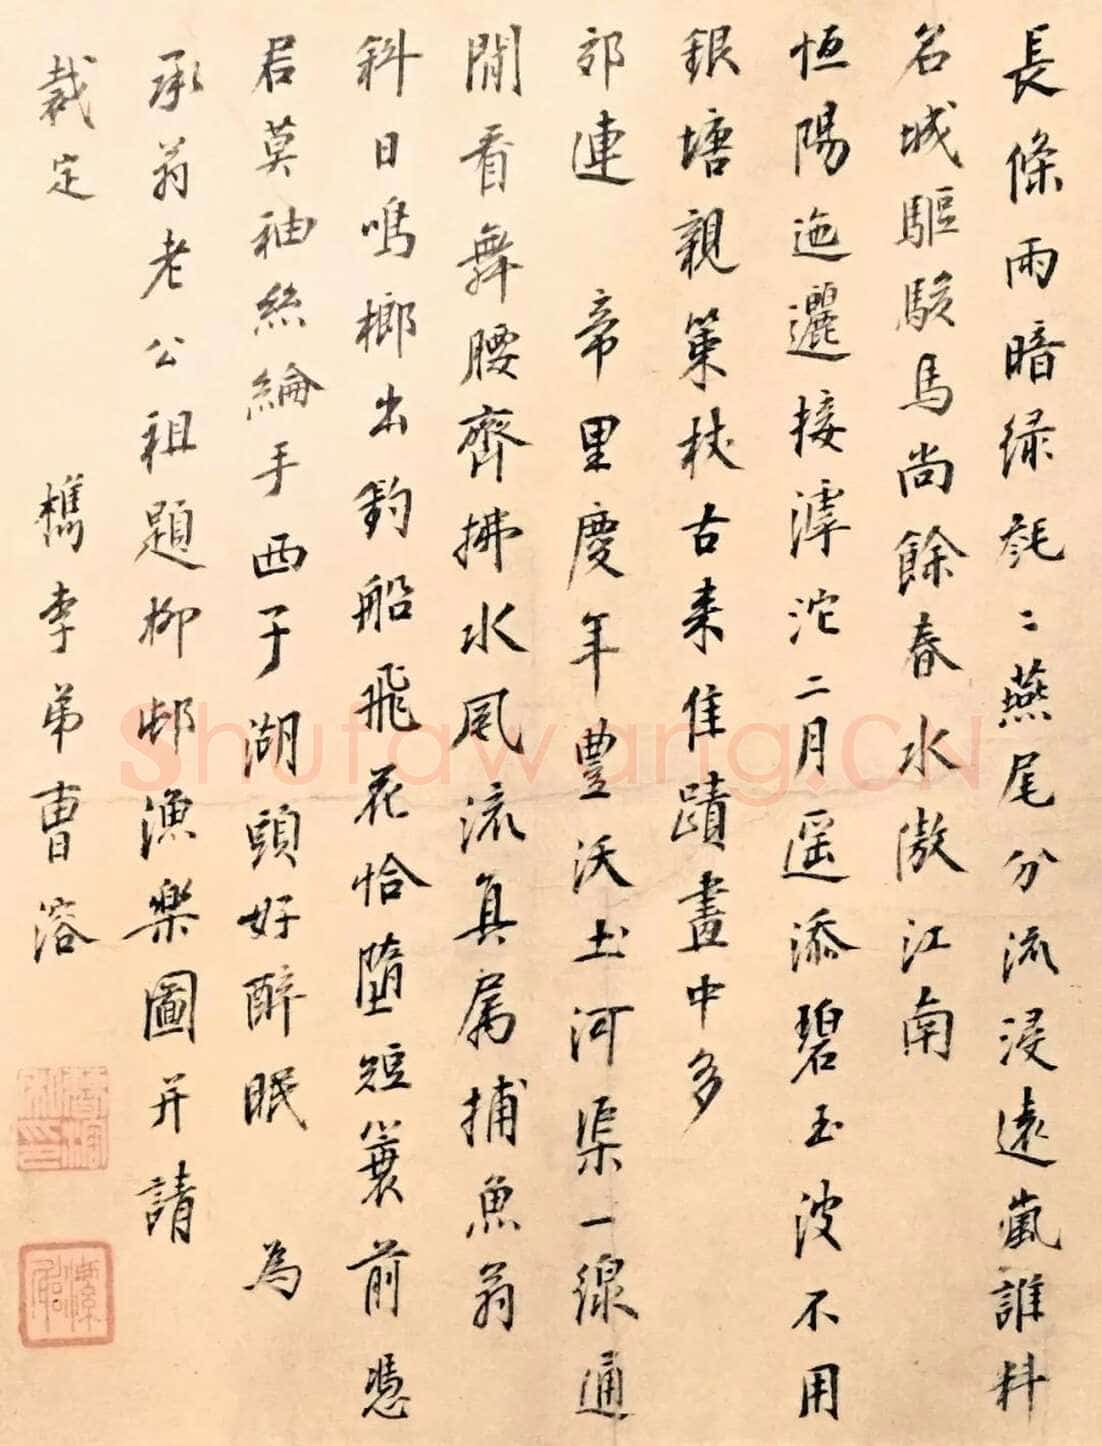 長條雨暗绿毵〻燕尾分流浸遠嵐誰料
名城驅駿馬尚餘春水傲江南
恒陽迤邐接滹沱二月遥添碧玉波不用
銀塘親策杖古来佳蹟畫中多
郊連 帝里慶年豊沃土河渠一線通
閒看舞腰齊拂水風流真属捕魚翁
斜日鳴榔出釣船飛花恰墮短簑前憑
君莫秞絲綸手西子湖頭好醉眠 為
承翁老公祖題柳邨漁樂圖并請
裁定 檇李弟曹溶
Shufawang.CN